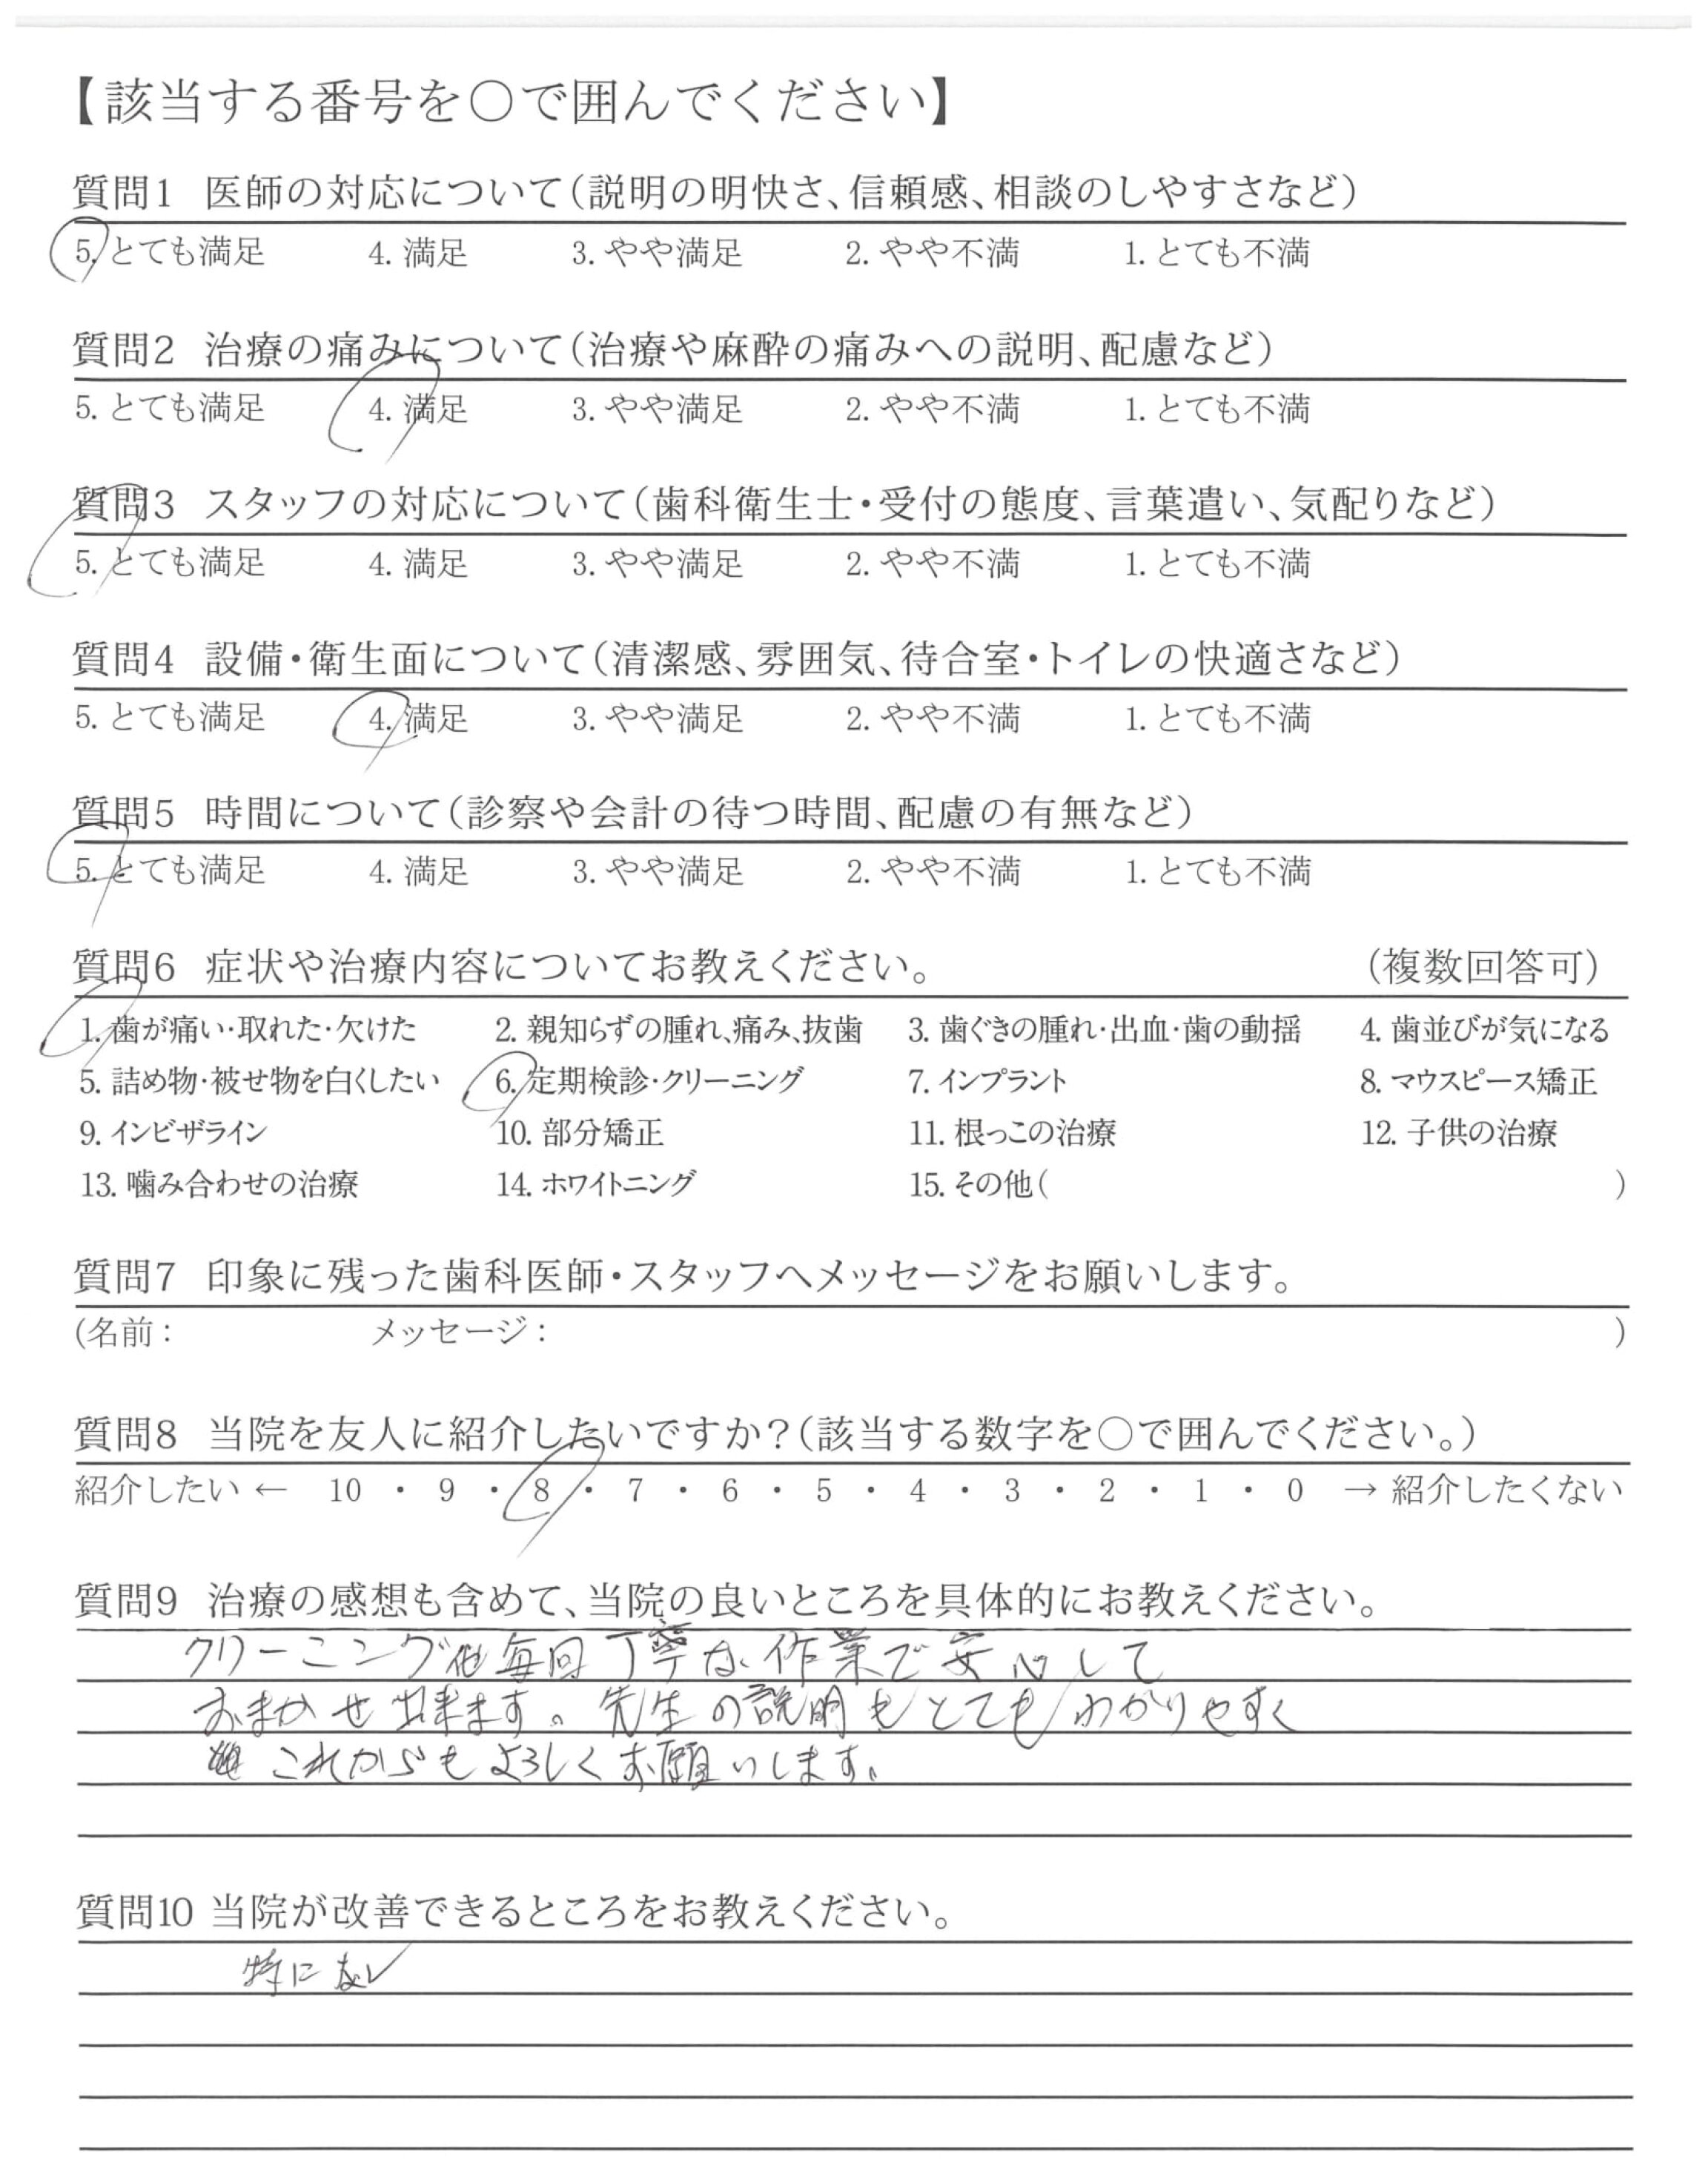 【該当する番号を〇で囲んでください】
質問1 医師の対応について(説明の明快さ、信頼感、相談のしやすさなど)
5. とても満足 4. 満足 3. やや満足 2. やや不満 1. とても不満
質問2 治療の痛みについて(治療や麻酔の痛みへの説明、配慮など)
5. とても満足 4. 満足 3. やや満足 2. やや不満 1. とても不満
質問3 スタッフの対応について(歯科衛生士・受付の態度、言葉遣い、気配りなど)
5. とても満足 4. 満足 3. やや満足 2. やや不満 1. とても不満
質問4 設備・衛生面について(清潔感、雰囲気、待合室・トイレの快適さなど)
5. とても満足 4. 満足 3. やや満足 2. やや不満 1. とても不満
質問5 時間について(診察や会計の待つ時間、配慮の有無など)
5. とても満足 4. 満足 3. やや満足 2. やや不満 1. とても不満
質問6 症状や治療内容についてお教えください。 (複数回答可)
1. 歯が痛い・取れた・欠けた 2. 親知らずの腫れ、痛み、抜歯 3. 歯ぐきの腫れ・出血・歯の動揺 4. 歯並びが気になる
5. 詰め物・被せ物を白くしたい 6. 定期検診・クリーニング 7. インプラント 8. マウスピース矯正
9. インビザライン 10. 部分矯正 11. 根っこの治療 12. 子供の治療
13. 噛み合わせの治療 14. ホワイトニング 15. その他( )
質問7 印象に残った歯科医師・スタッフへメッセージをお願いします。
(名前: メッセージ: )
質問8 当院を友人に紹介したいですか?(該当する数字を〇で囲んでください。)
紹介したい ← 10 ・ 9 ・ 8 ・ 7 ・ 6 ・ 5 ・ 4 ・ 3 ・ 2 ・ 1 ・ 0 → 紹介したくない
質問9 治療の感想も含めて、当院の良いところを具体的にお教えください。
クリーニング他毎回丁寧な作業で安心して
おまかせ出来ます。先生の説明もとてもわかりやすく
これからもよろしくお願いします。
質問10 当院が改善できるところをお教えください。
特になし